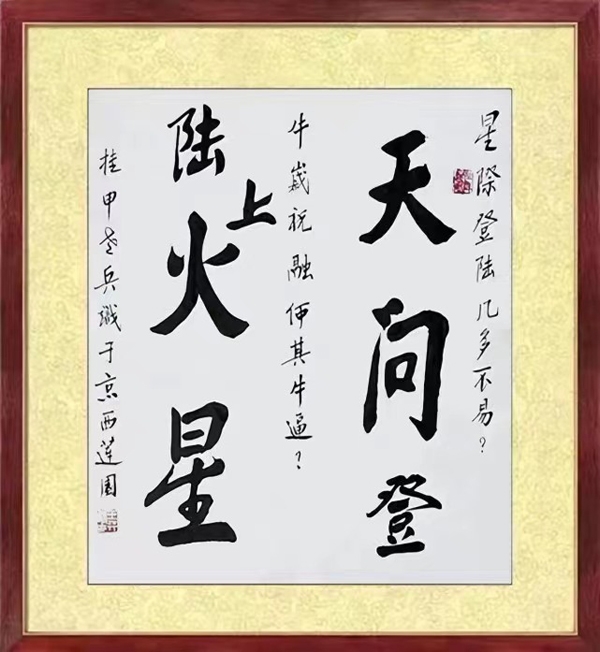 星際登陆几多不易?
天问登
牛嵗祝融何其牛逼?
陆上火星
挂甲老兵識于京西蓮園